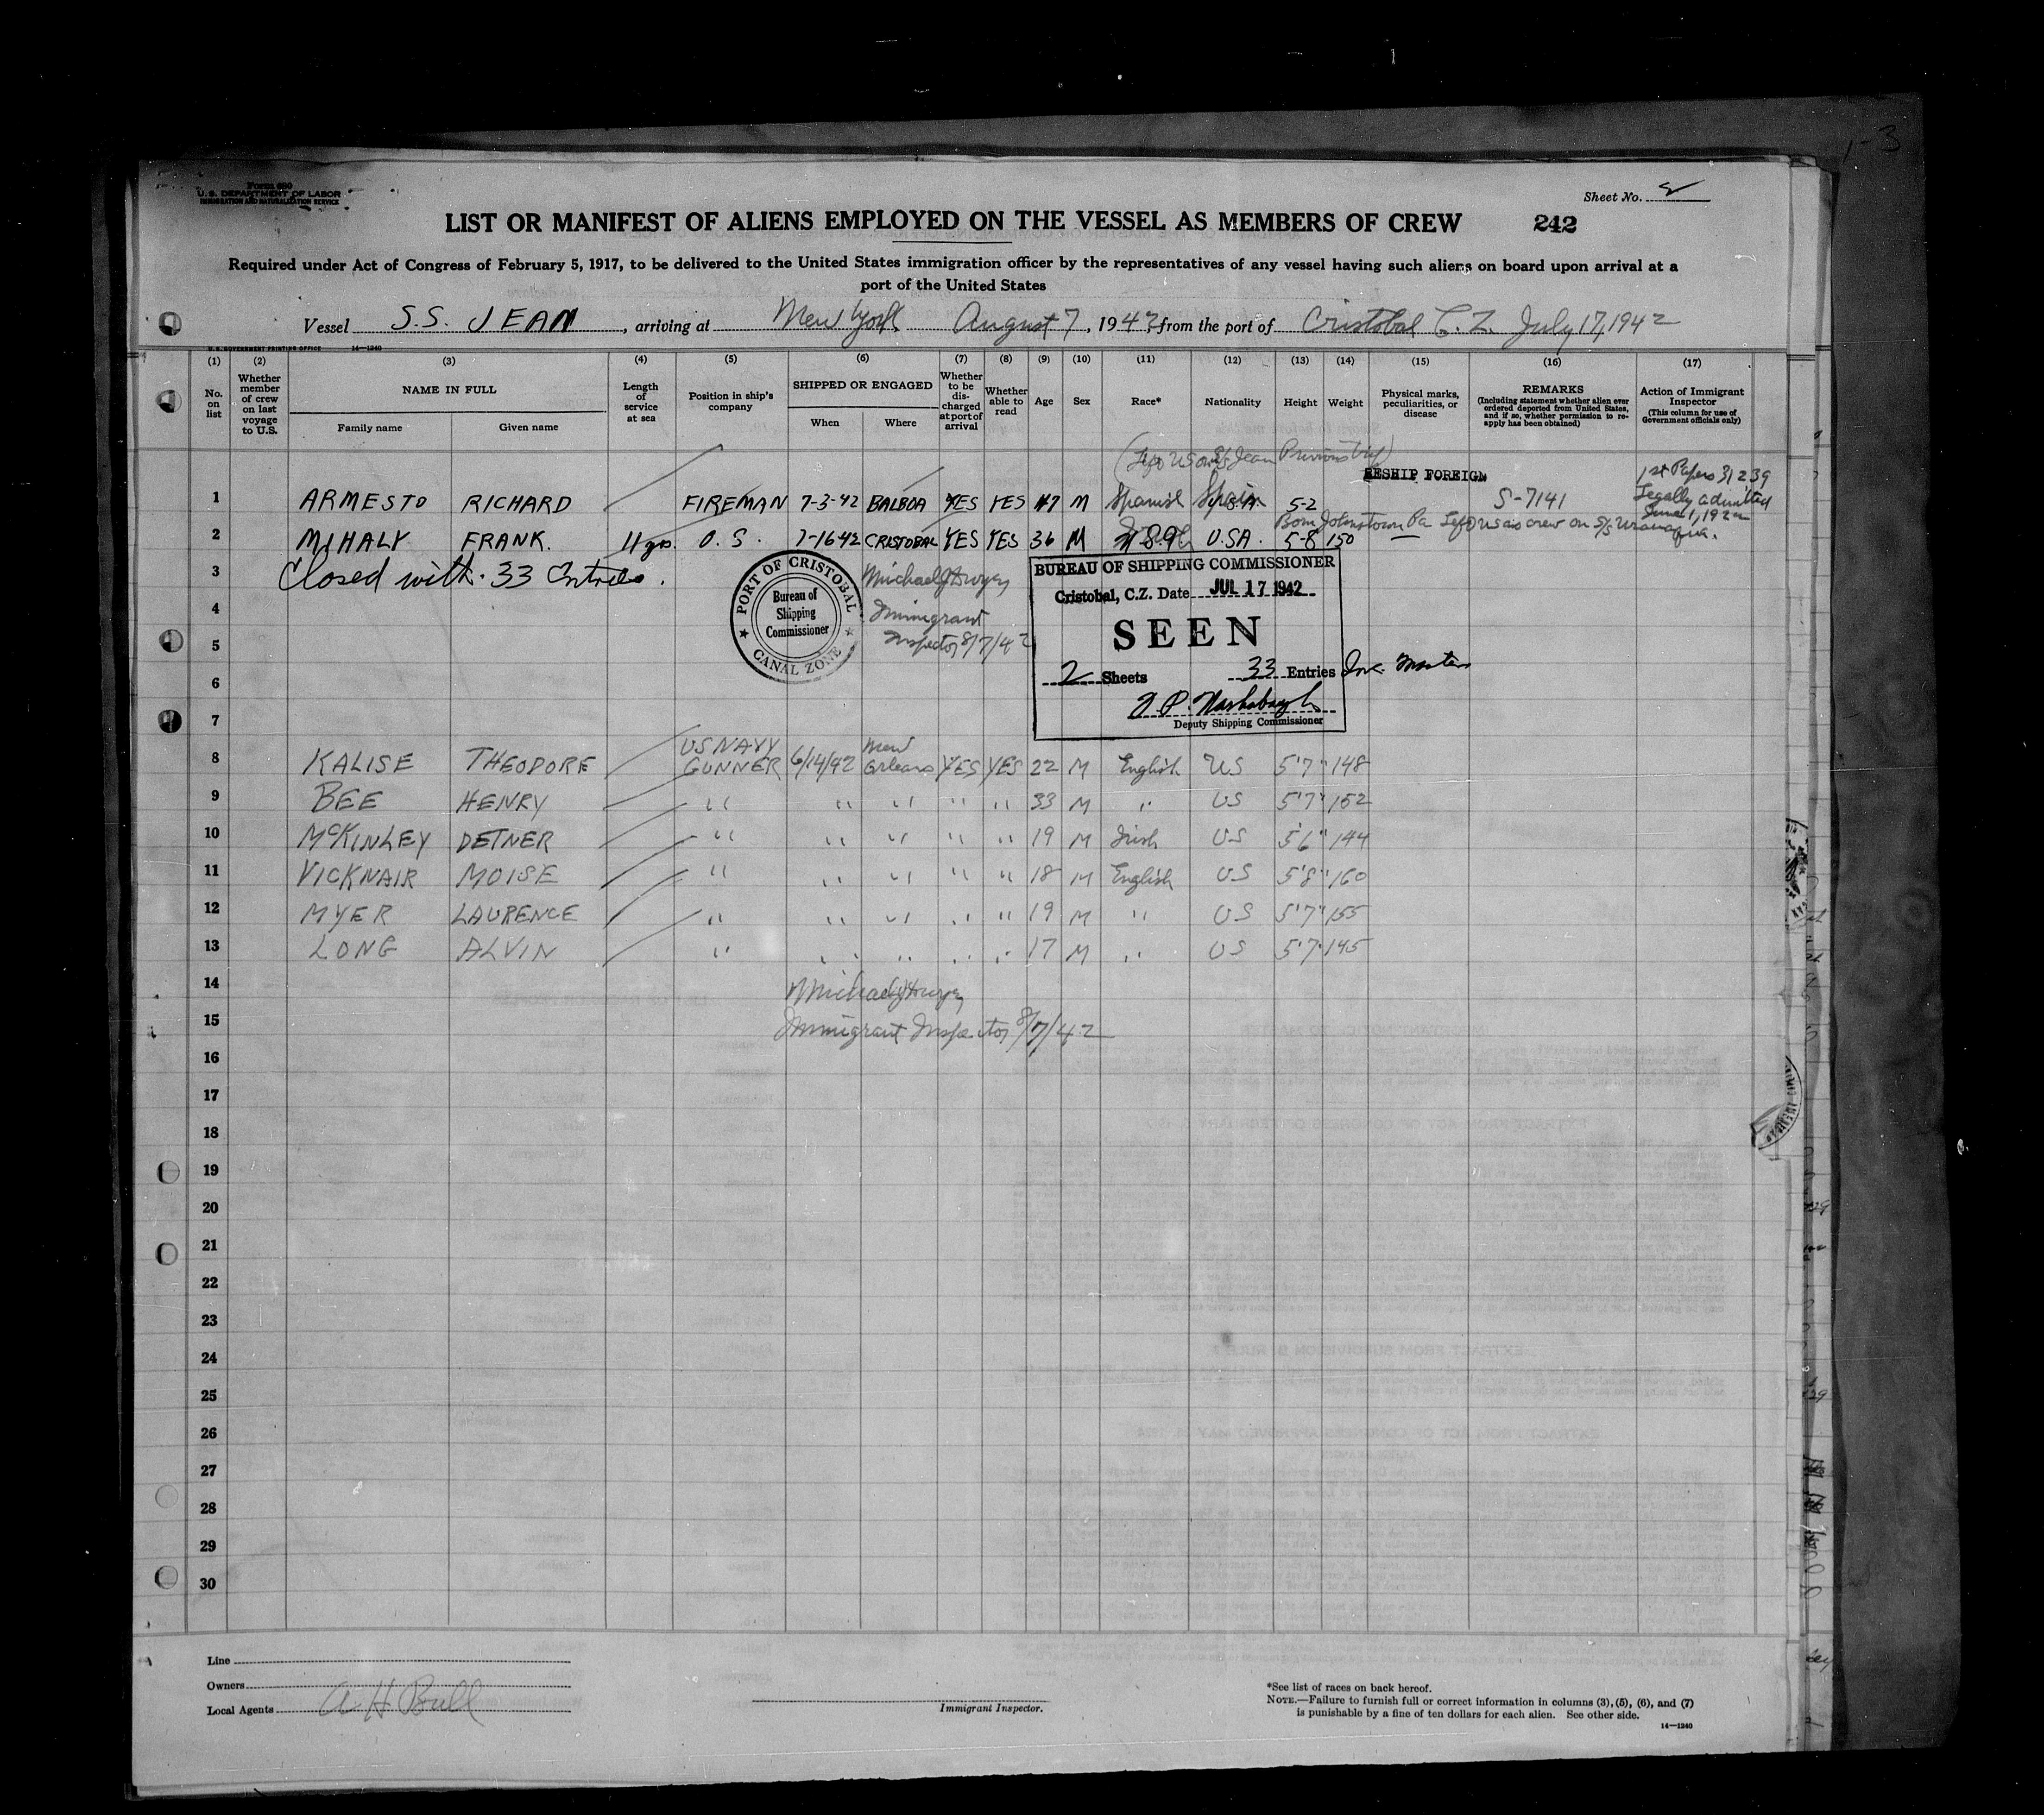 1-3
Form 680
U.S. DEPARTMENT OF LABOR
IMMIGRATION AND NATURALIZATION SERVICE
Sheet No. 2
LIST OR MANIFEST OF ALIENS EMPLOYED ON THE VESSEL AS MEMBERS OF CREW 242
Required under Act of Congress of February 5, 1917, to be delivered to the United States immigration officer by the representatives of any vessel having such aliens on board upon arrival at a
port of the United States
Vessel S.S. JEAN, arriving at New York August 7, 1942, from the port of Cristobal C.Z. July 17, 1942
U. S. GOVERNMENT PRINTING OFFICE 14—1240
(1) (2) (3) (4) (5) (6) (7) (8) (9) (10) (11) (12) (13) (14) (15) (16) (17)
No. on list
Whether member of crew on last voyage to U.S.
NAME IN FULL
Family name
Given name
Length of service at sea
Position in ship's company
SHIPPED OR ENGAGED
When
Where
Whether to be discharged at port of arrival
Whether able to read
Age
Sex
Race*
Nationality
Height
Weight
Physical marks, peculiarities, or disease
REMARKS
(Including statement whether alien ever ordered deported from United States, and if so, whether permission to reapply has been obtained)
Action of Immigrant Inspector
(This column for use of Government officials only)
(Left US on SS Jean Previous Trip)
RESHIP FOREIGN
1st Papers 31239
Legally admitted
June 1, 192
1 ARMESTO RICHARD FIREMAN 7-3-42 BALBOA YES YES 47 M Spanish Spain 5-2 S-7141
Born Johnstown Pa Left US as crew on S/S
2 MIHALY FRANK. 11 yrs. O.S. 7-16 42 CRISTOBAL YES YES 36 M U.SA. 5-8 150
3 Closed with 33 Entries.
4
5
6
7
PORT OF CRISTOBAL
Bureau of
Shipping
Commissioner
CANAL ZONE
Michael J Dwyer
Immigrant
Inspector 8/7/42
BUREAU OF SHIPPING COMMISSIONER
Cristobal, C.Z. Date JUL 17 1942
SEEN
2 Sheets 33 Entries Inc. Master
Deputy Shipping Commissioner
8 KALISE THEODORE US NAVY GUNNER 6/14/42 New Orleans YES YES 22 M English US 5'7" 148
9 BEE HENRY " " " " " 33 M " US 5'7" 152
10 McKINLEY DETNER " " " " " 19 M Irish US 5'6" 144
11 VICKNAIR MOISE " " " " " 18 M English US 5'8" 160
12 MYER LAURENCE " " " " " 19 M " US 5'7" 155
13 LONG ALVIN " " " " " 17 M " US 5'7" 145
14 Michael J Dwyer
15 Immigrant Inspector 8/7/42
16
17
18
19
20
21
22
23
24
25
26
27
28
29
30
Line
Owners
Local Agents A H Bull
Immigrant Inspector.
*See list of races on back hereof.
NOTE.—Failure to furnish full or correct information in columns (3), (5), (6), and (7)
is punishable by a fine of ten dollars for each alien. See other side.
14—1240